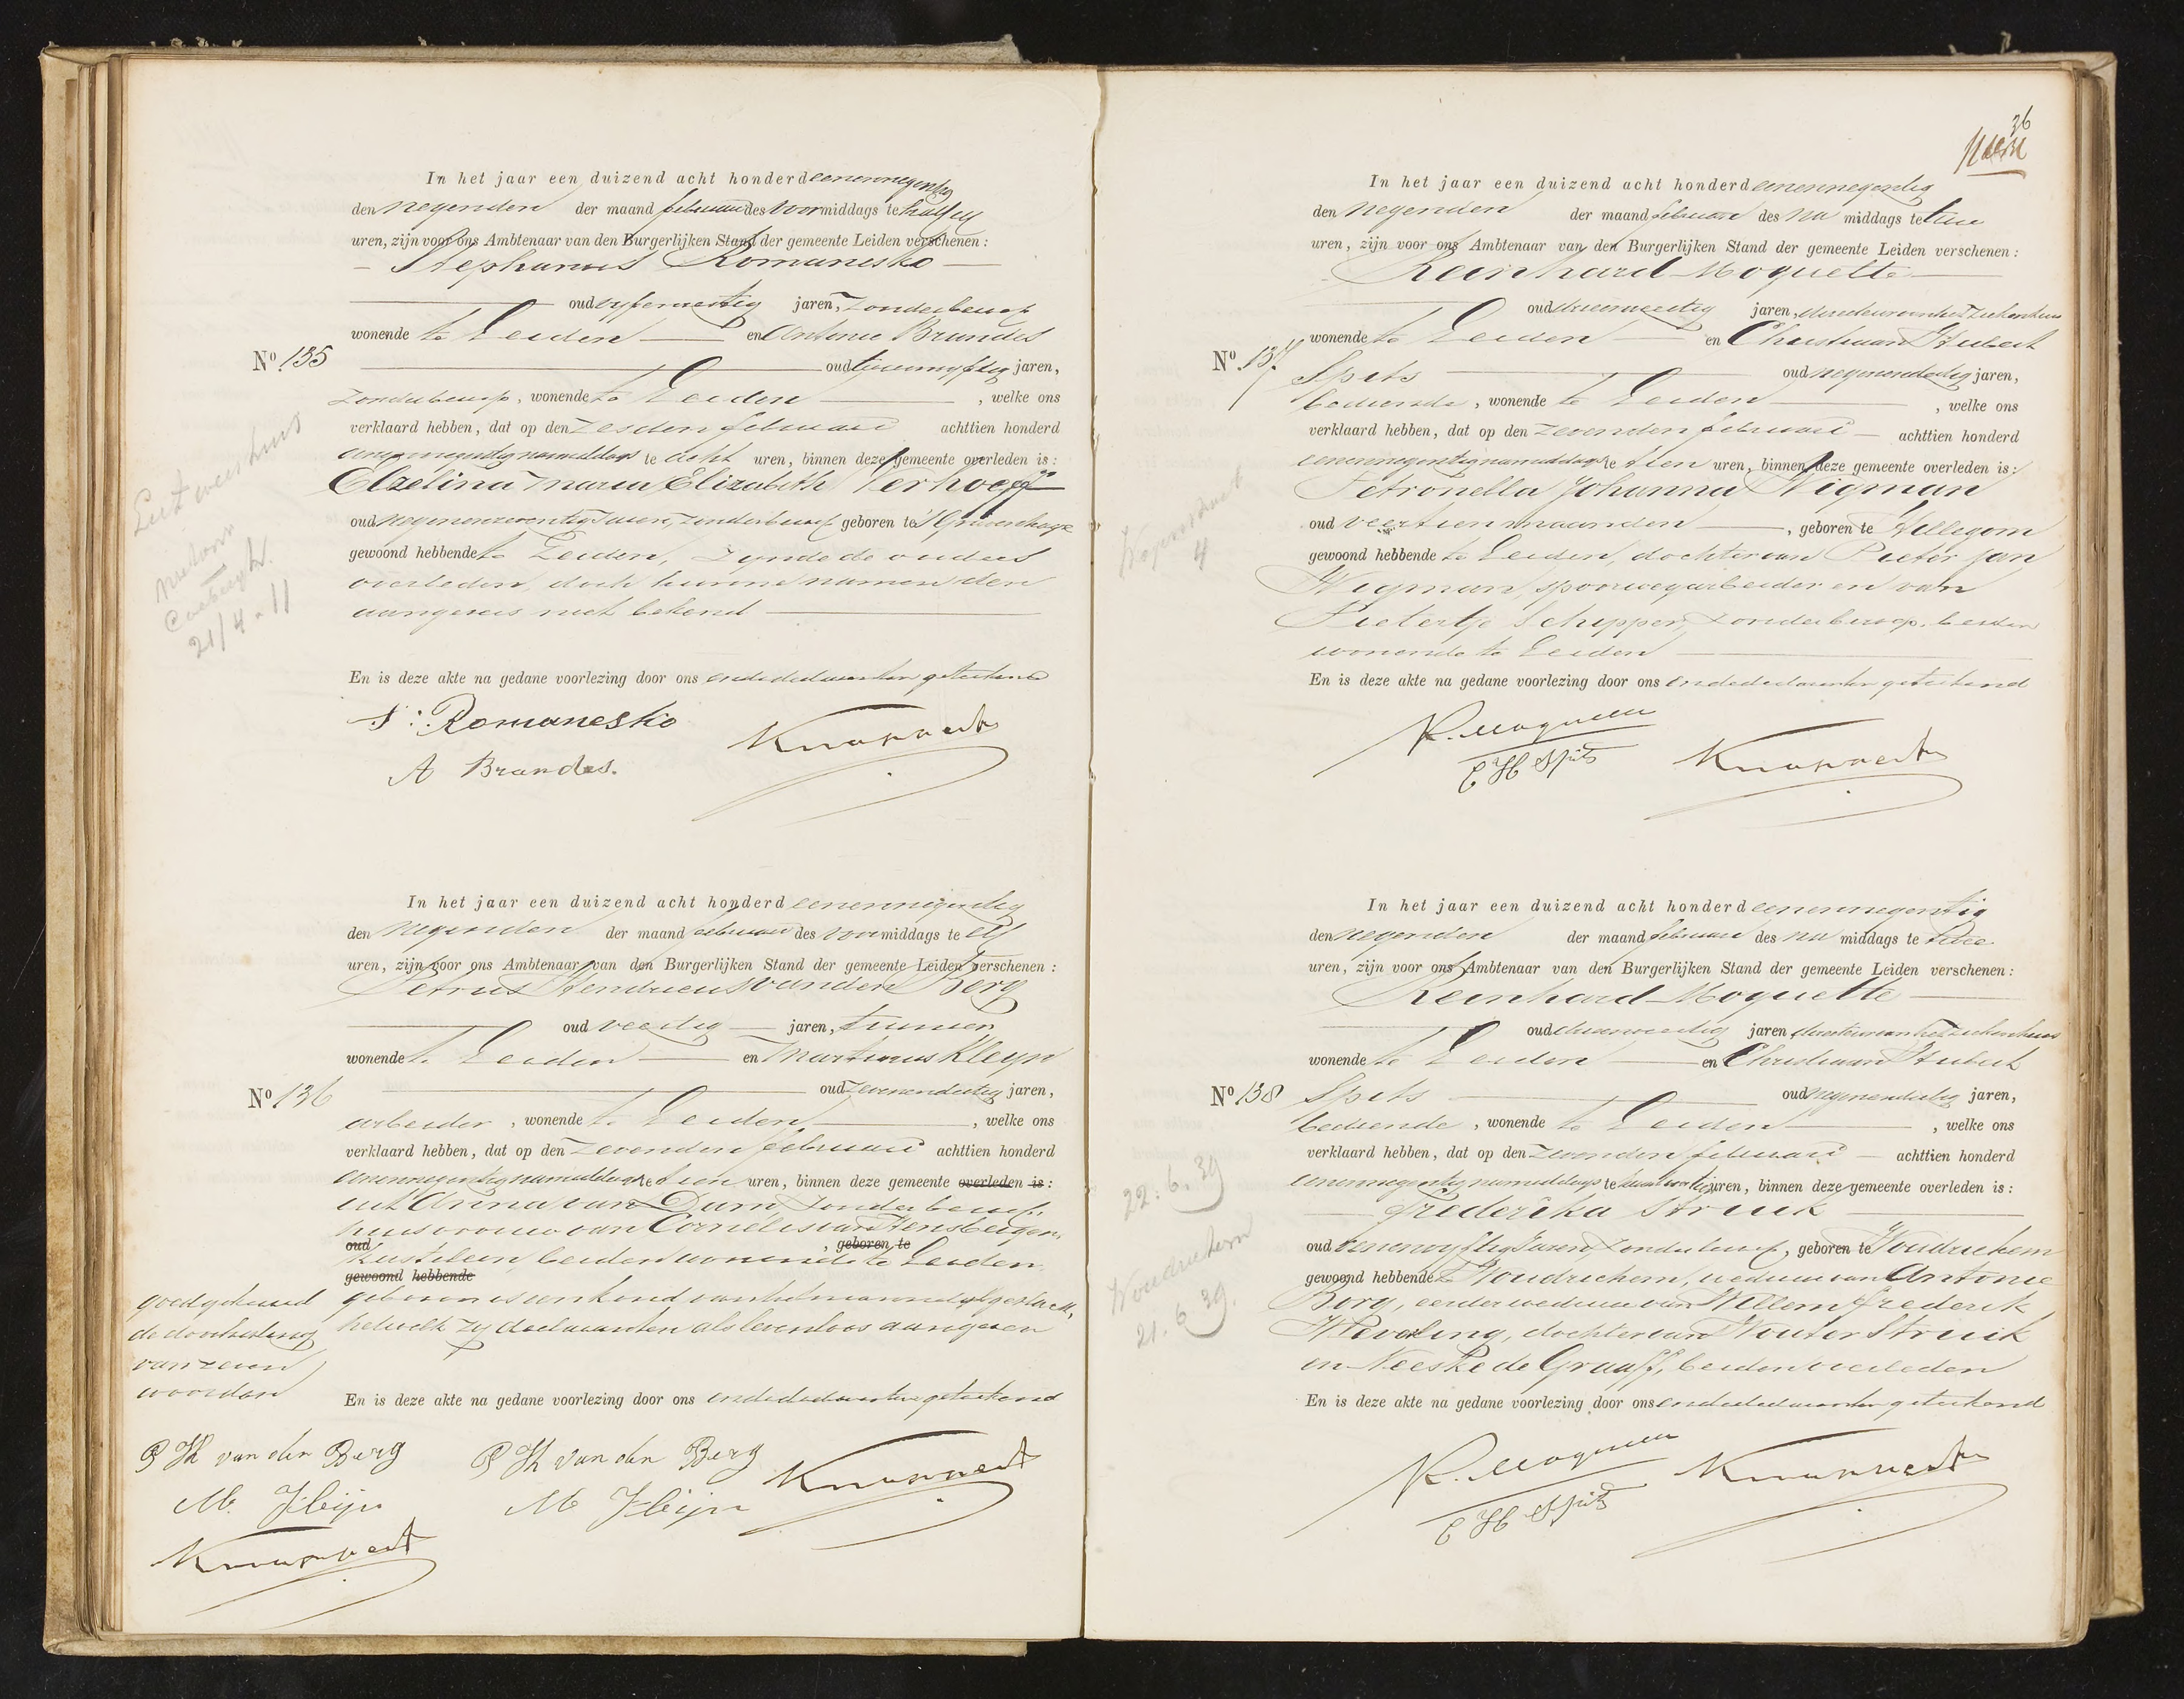 In het jaar een duizend acht honderd eenennegentig
den negenden der maand februari des voormiddags te half elf
uren, zijn voor ons Ambtenaar van den Burgerlijken Stand der gemeente Leiden verschenen:
Stephanus Romanesko
oud vyfenveertig jaren, zonder beroep
wonende te Leiden en Antonie Brandes
No 135
oud tweeenvyftig jaren,
zonder beroep, wonende te Leiden, welke ons
verklaard hebben, dat op den zesden februari achttien honderd
eenennegentig namiddags te acht uren, binnen deze gemeente overleden is:
Elzelina Maria Elizabeth Verhoeff
oud negenenzeventig Jaren, zonder beroep geboren te 'S Gravenhage
gewoond hebbende te Leiden, zynde de ouders
overleden, doch hunne namen den
aangevers niet bekend
21/4-11
En is deze akte na gedane voorlezing door ons en de declaranten geteekend
S: Romanesko
Knappert
A Brandes.
In het jaar een duizend acht honderd eenennegentig
den negenden der maand februari des voormiddags te elf
uren, zijn voor ons Ambtenaar van den Burgerlijken Stand der gemeente Leiden verschenen:
Petrus Hendricus van den Berg
oud veertig jaren, timmerman
wonende te Leiden en Martinus Kleyn
No 136
oud zevenendertig jaren,
arbeider, wonende te Leiden, welke ons
verklaard hebben, dat op den zevenden februari achttien honderd
eenennegentig namiddags te tien uren, binnen deze gemeente overleden is:
uit Anna van Dam, zonder beroep,
huisvrouw van Cornelis van Hensbergen,
oud, geboren te
beiden wonende te Leiden,
gewoond hebbende
geboren is een kind van het mannelyk geslacht,
hetwelk zy declaranten als levenloos aangeven
goedgekeurd
de doorhaling
van zeven
woorden
En is deze akte na gedane voorlezing door ons en de declaranten geteekend
P H van den Berg
P H van den Berg
Knappert
M. Kleijn
M Kleijn
Knappert
36
In het jaar een duizend acht honderd eenennegentig
den negenden der maand februari des na middags te twee
uren, zijn voor ons Ambtenaar van den Burgerlijken Stand der gemeente Leiden verschenen:
Reinhard Moquette
oud drieenveertig jaren, directeur van het Ziekenhuis
wonende te Leiden en Christiaan Hubert
No 137
Spits oud negenendertig jaren,
bediende, wonende te Leiden, welke ons
verklaard hebben, dat op den zevenden februari achttien honderd
eenennegentig namiddags te tien uren, binnen deze gemeente overleden is:
Petronella Johanna Wigman
oud veertien maanden, geboren te Hillegom
gewoond hebbende te Leiden, dochter van Pieter Jan
Wigman, spoorwegarbeider en van
Pietertje Schipper, zonder beroep, beiden
wonende te Leiden
4
En is deze akte na gedane voorlezing door ons en de declaranten geteekend
R. Moquette
C H Spits
Knappert
In het jaar een duizend acht honderd eenennegentig
den negenden der maand februari des na middags te twee
uren, zijn voor ons Ambtenaar van den Burgerlijken Stand der gemeente Leiden verschenen:
Reinhard Moquette
oud drieenveertig jaren, directeur van het Ziekenhuis
wonende te Leiden en Christiaan Hubert
No 138
Spits oud negenendertig jaren,
bediende, wonende te Leiden, welke ons
verklaard hebben, dat op den zevenden februari achttien honderd
eenennegentig namiddags te uren, binnen deze gemeente overleden is:
Frederika Struik
oud eenenvyftig Jaren, zonder beroep, geboren te Woudrichem
gewoond hebbende te Woudrichem, weduwe van Antonie
Borg, eerder weduwe van Willem Frederik
dochter van Wouter Struik
en Neeske de Graaff, beiden overleden
22.6.39
Woudrichem
21.6.39.
En is deze akte na gedane voorlezing door ons en de declaranten geteekend
R. Moquette
C H Spits
Knappert